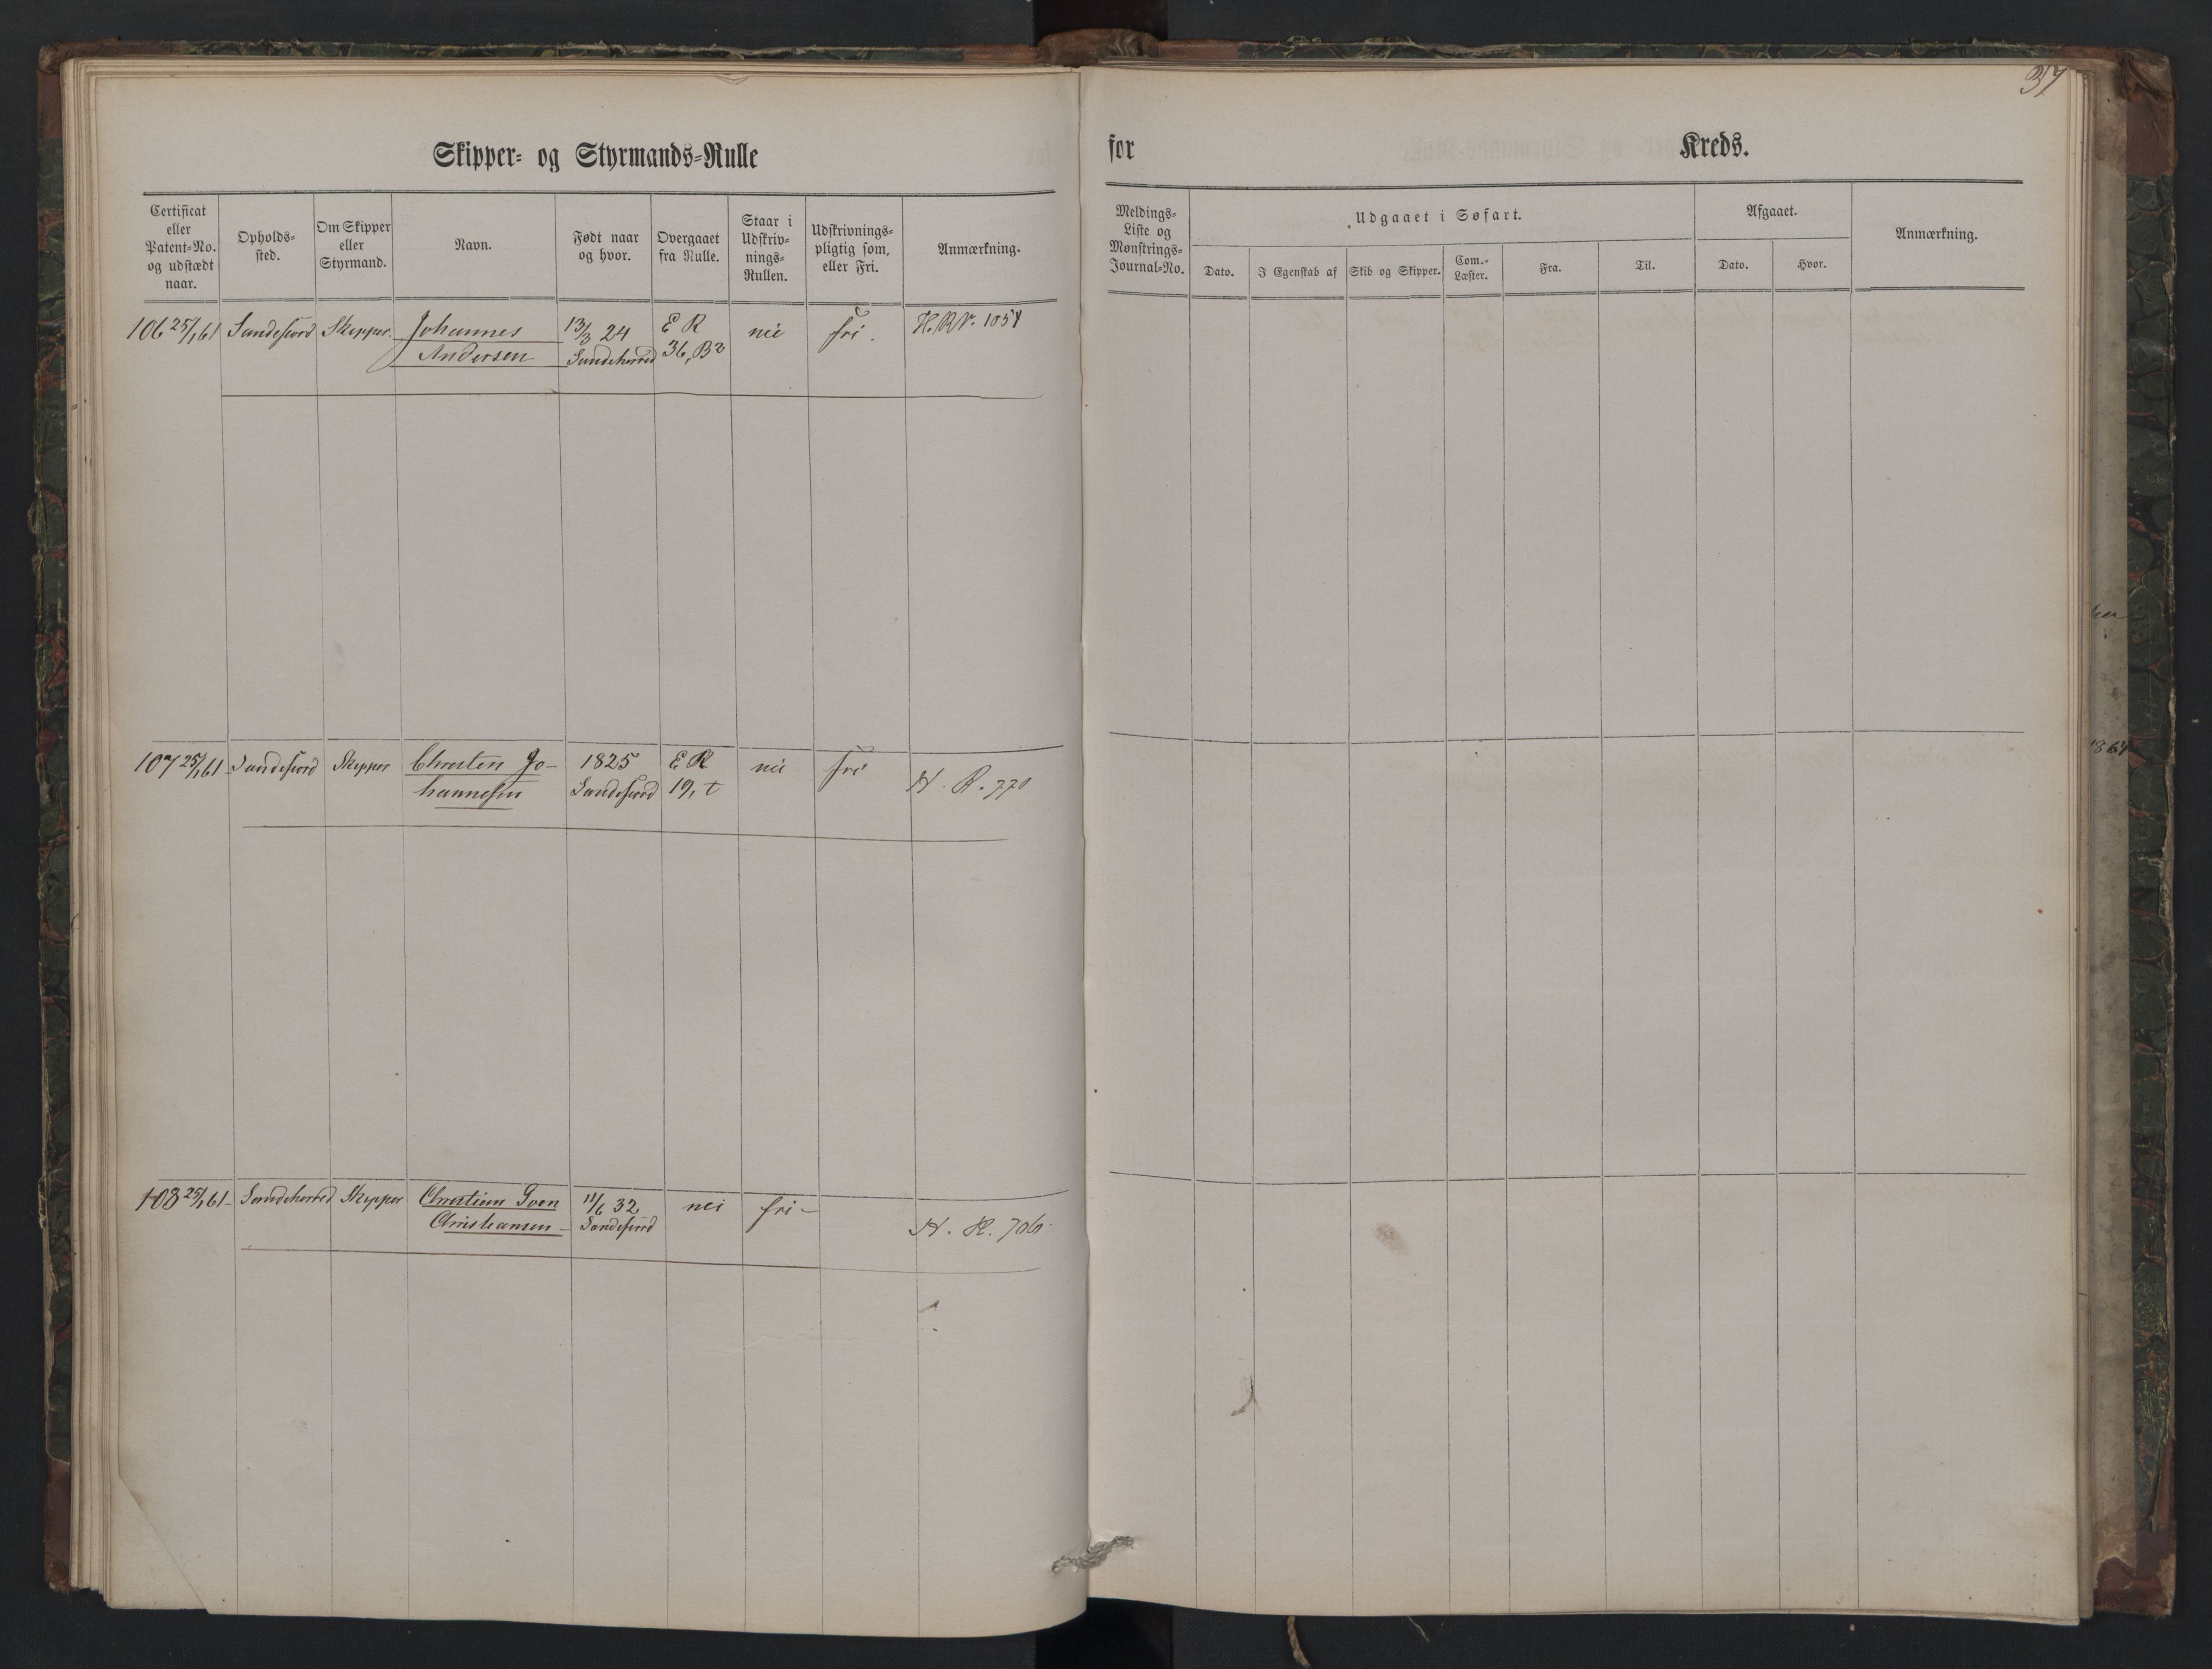 37
Skipper- og Styrmands-Rulle
for Kreds.
Certificat eller Patent-No. og udstædt naar.
Opholds-sted.
Om Skipper eller Styrmand.
Navn.
Født naar og hvor.
Overgaaet fra Rulle.
Staar i Udskriv-nings-Rullen.
Udskrivnings-pligtig som, eller Fri.
Anmærkning.
Meldings-Liste og Mønstrings-Journal-No.
Udgaaet i Søfart.
Dato.
I Egenskab af
Skib og Skipper.
Com.-Læster.
Fra.
Til.
Afgaaet.
Dato.
Hvor.
Anmærkning.
106 25/1 61 Sandefiord Skipper Johannes 13/3 24 E R nei fri. H.R.N. 1054
Andersen Sandeherred 36, B2
107 25/1 61 Sandefiord Skipper Christen Jo- 1825 E R nei fri
hannesen Sandefiord 19, t H. R. 770
108 25/1 61 Sandeherred Skipper Christian Sven 11/6 32 nei fri
Christiansen Sandefiord H. R. 706